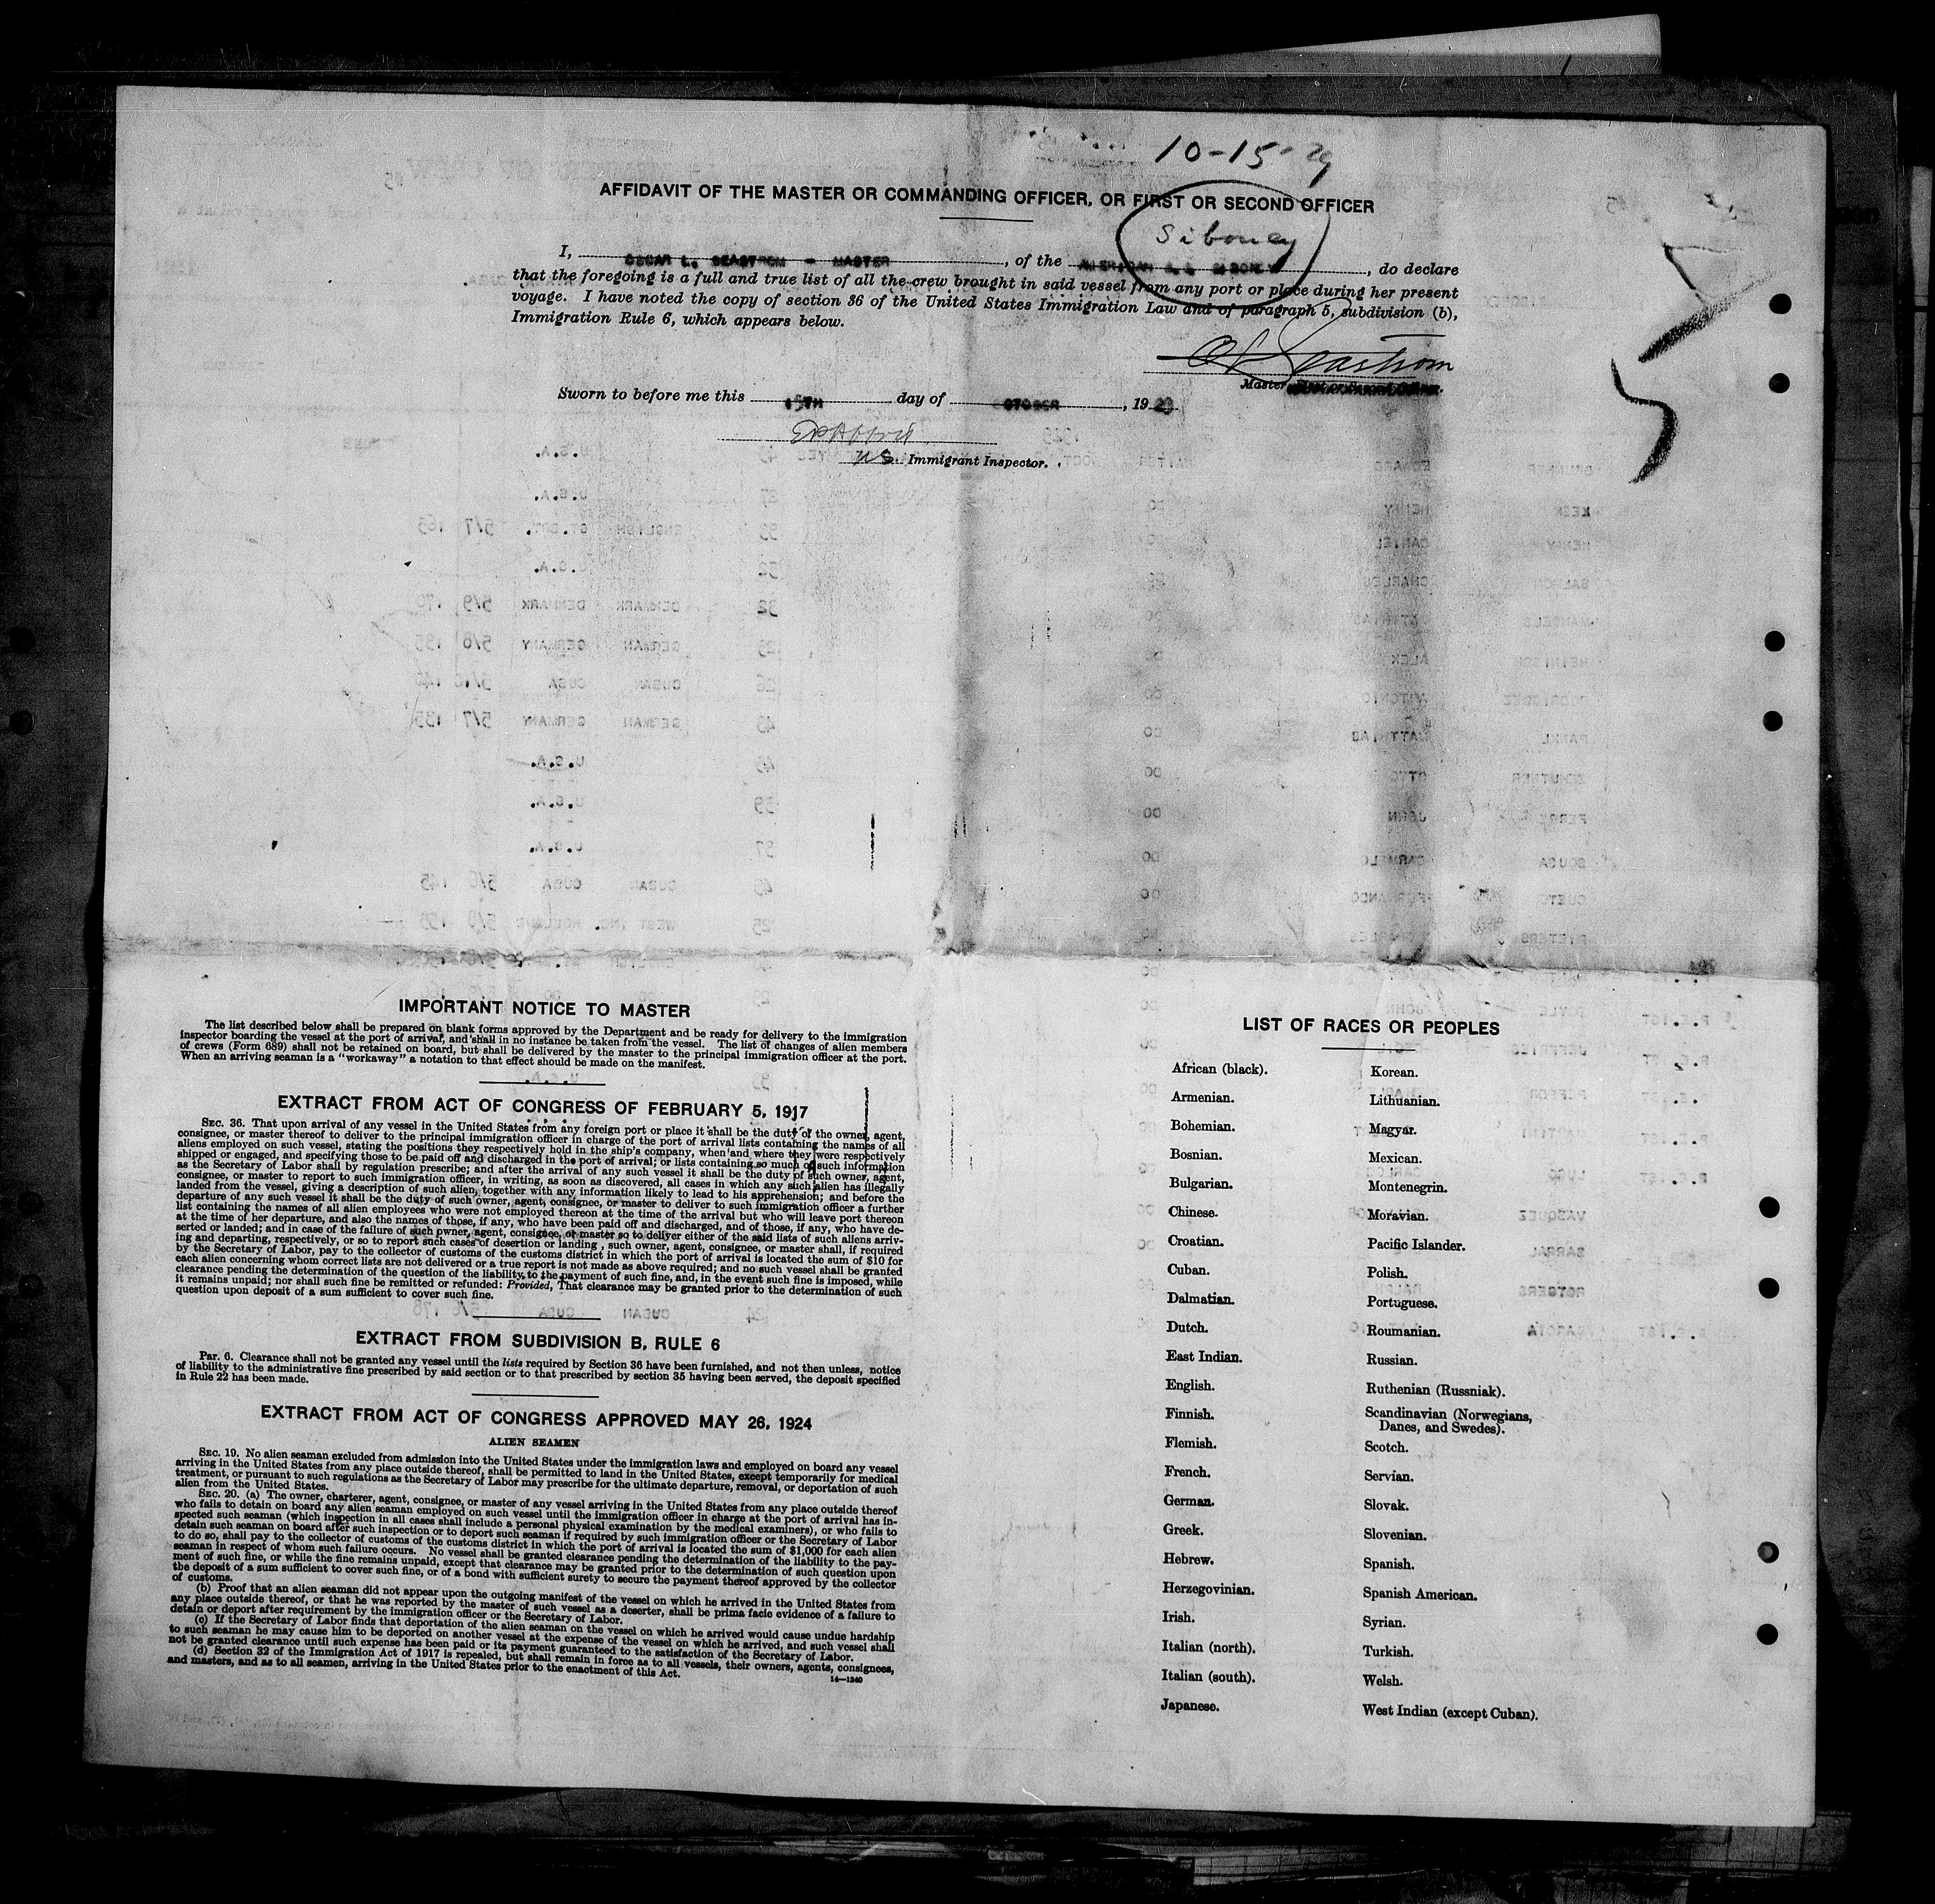 10-15-29
AFFIDAVIT OF THE MASTER OR COMMANDING OFFICER, OR FIRST OR SECOND OFFICER
Siboney
I, OSCAR L. SEASTROM - MASTER, of the AMERICAN S.S. SIBONEY, do declare
that the foregoing is a full and true list of all the crew brought in said vessel from any port or place during her present
voyage. I have noted the copy of section 36 of the United States Immigration Law and of paragraph 5, subdivision (b),
Immigration Rule 6, which appears below.
O L Seastrom
Master
Sworn to before me this 15TH day of OCTOBER, 1929
US. Immigrant Inspector.
IMPORTANT NOTICE TO MASTER
The list described below shall be prepared on blank forms approved by the Department and be ready for delivery to the immigration
inspector boarding the vessel at the port of arrival, and shall in no instance be taken from the vessel. The list of changes of alien members
of crews (Form 689) shall not be retained on board, but shall be delivered by the master to the principal immigration officer at the port.
When an arriving seaman is a "workaway" a notation to that effect should be made on the manifest.
EXTRACT FROM ACT OF CONGRESS OF FEBRUARY 5, 1917
SEC. 36. That upon arrival of any vessel in the United States from any foreign port or place it shall be the duty of the owner, agent,
consignee, or master thereof to deliver to the principal immigration officer in charge of the port of arrival lists containing the names of all
aliens employed on such vessel, stating the positions they respectively hold in the ship's company, when and where they were respectively
shipped or engaged, and specifying those to be paid off and discharged in the port of arrival; or lists containing so much of such information
as the Secretary of Labor shall by regulation prescribe; and after the arrival of any such vessel it shall be the duty of such owner, agent,
consignee, or master to report to such immigration officer, in writing, as soon as discovered, all cases in which any such alien has illegally
landed from the vessel, giving a description of such alien, together with any information likely to lead to his apprehension; and before the
departure of any such vessel it shall be the duty of such owner, agent, consignee, or master to deliver to such immigration officer a further
list containing the names of all alien employees who were not employed thereon at the time of the arrival but who will leave port thereon
at the time of her departure, and also the names of those, if any, who have been paid off and discharged, and of those, if any, who have de-
serted or landed; and in case of the failure of such owner, agent, consignee, or master so to deliver either of the said lists of such aliens arriv-
ing and departing, respectively, or so to report such cases of desertion or landing, such owner, agent, consignee, or master shall, if required
by the Secretary of Labor, pay to the collector of customs of the customs district in which the port of arrival is located the sum of $10 for
each alien concerning whom correct lists are not delivered or a true report is not made as above required; and no such vessel shall be granted
clearance pending the determination of the question of the liability to the payment of such fine, and, in the event such fine is imposed, while
it remains unpaid; nor shall such fine be remitted or refunded: Provided, That clearance may be granted prior to the determination of such
question upon deposit of a sum sufficient to cover such fine.
EXTRACT FROM SUBDIVISION B, RULE 6
Par. 6. Clearance shall not be granted any vessel until the lists required by Section 36 have been furnished, and not then unless, notice
of liability to the administrative fine prescribed by said section or to that prescribed by section 35 having been served, the deposit specified
in Rule 22 has been made.
EXTRACT FROM ACT OF CONGRESS APPROVED MAY 26, 1924
ALIEN SEAMEN
SEC. 19. No alien seaman excluded from admission into the United States under the immigration laws and employed on board any vessel
arriving in the United States from any place outside thereof, shall be permitted to land in the United States, except temporarily for medical
treatment, or pursuant to such regulations as the Secretary of Labor may prescribe for the ultimate departure, removal, or deportation of such
alien from the United States.
SEC. 20. (a) The owner, charterer, agent, consignee, or master of any vessel arriving in the United States from any place outside thereof
who fails to detain on board any alien seaman employed on such vessel until the immigration officer in charge at the port of arrival has in-
spected such seaman (which inspection in all cases shall include a personal physical examination by the medical examiners), or who fails to
detain such seaman on board after such inspection or to deport such seaman if required by such immigration officer or the Secretary of Labor
to do so, shall pay to the collector of customs of the customs district in which the port of arrival is located the sum of $1,000 for each alien
seaman in respect of whom such failure occurs. No vessel shall be granted clearance pending the determination of the liability to the pay-
ment of such fine, or while the fine remains unpaid, except that clearance may be granted prior to the determination of such question upon
the deposit of a sum sufficient to cover such fine, or of a bond with sufficient surety to secure the payment thereof approved by the collector
of customs.
(b) Proof that an alien seaman did not appear upon the outgoing manifest of the vessel on which he arrived in the United States from
any place outside thereof, or that he was reported by the master of such vessel as a deserter, shall be prima facie evidence of a failure to
detain or deport after requirement by the immigration officer or the Secretary of Labor.
(c) If the Secretary of Labor finds that deportation of the alien seaman on the vessel on which he arrived would cause undue hardship
to such seaman he may cause him to be deported on another vessel at the expense of the vessel on which he arrived, and such vessel shall
not be granted clearance until such expense has been paid or its payment guaranteed to the satisfaction of the Secretary of Labor.
(d) Section 32 of the Immigration Act of 1917 is repealed, but shall remain in force as to all vessels, their owners, agents, consignees,
and masters, and as to all seamen, arriving in the United States prior to the enactment of this Act.
14—1240
LIST OF RACES OR PEOPLES
African (black).
Armenian.
Bohemian.
Bosnian.
Bulgarian.
Chinese.
Croatian.
Cuban.
Dalmatian.
Dutch.
East Indian.
English.
Finnish.
Flemish.
French.
German.
Greek.
Hebrew.
Herzegovinian.
Irish.
Italian (north).
Italian (south).
Japanese.
Korean.
Lithuanian.
Magyar.
Mexican.
Montenegrin.
Moravian.
Pacific Islander.
Polish.
Portuguese.
Roumanian.
Russian.
Ruthenian (Russniak).
Scandinavian (Norwegians,
Danes, and Swedes).
Scotch.
Servian.
Slovak.
Slovenian.
Spanish.
Spanish American.
Syrian.
Turkish.
Welsh.
West Indian (except Cuban).